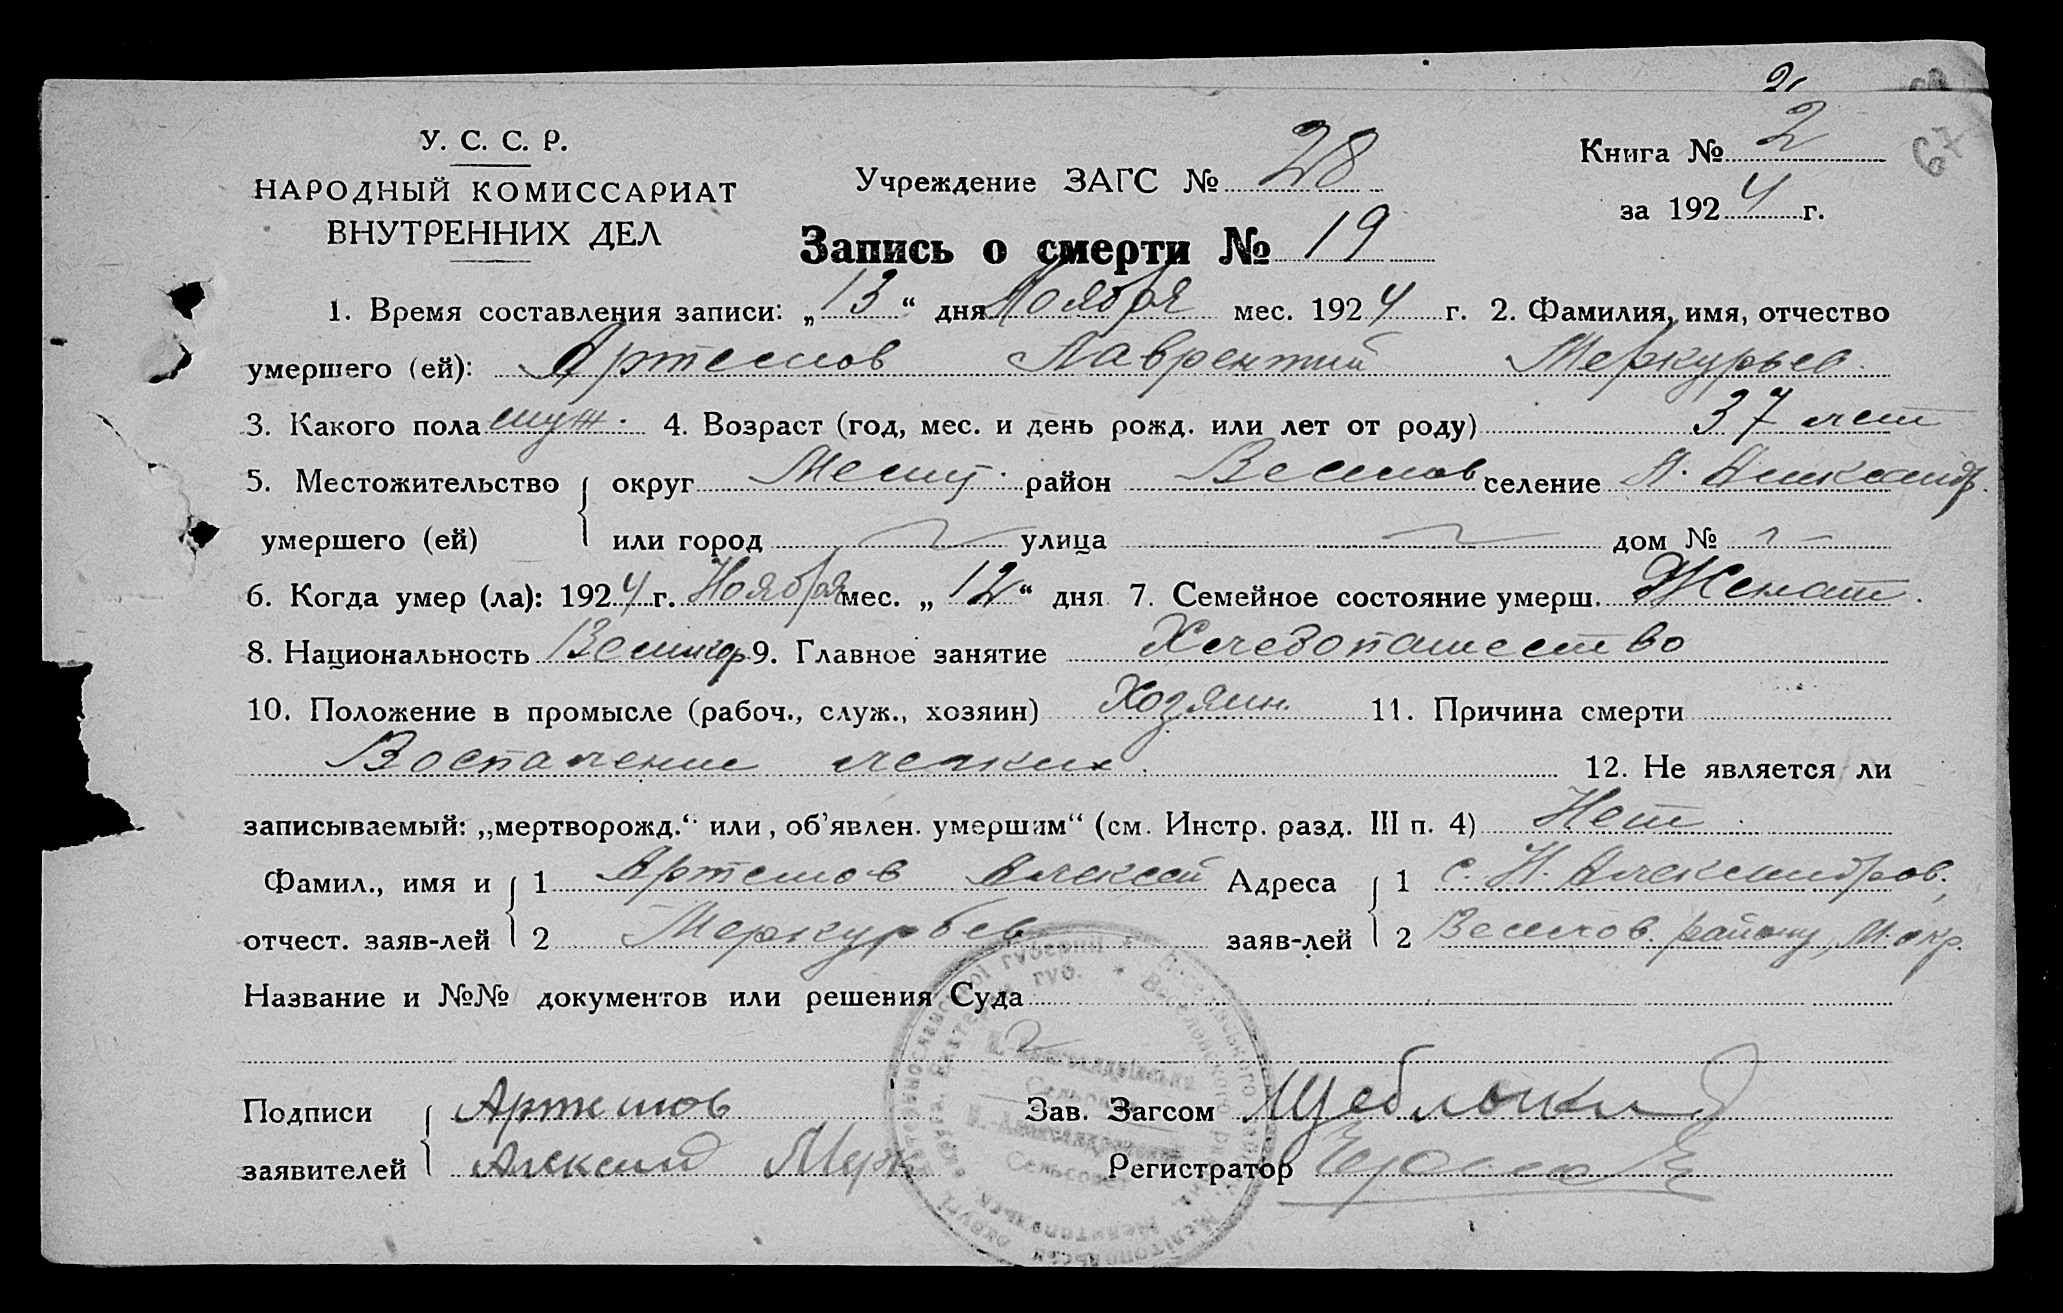 У. С. С. Р.
НАРОДНЫЙ КОМИССАРИАТ
ВНУТРЕННИХ ДЕЛ
Учреждение ЗАГС № 28
Книга № 2
67
за 1924 г.
Запись о смерти № 19
1. Время составления записи: „13“ дня Ноября мес. 1924 г. 2. Фамилия, имя, отчество
умершего (ей): Артемов Лаврентий Меркурьев.
3. Какого пола муж. 4. Возраст (год, мес. и день рожд. или лет от роду) 37 лет
5. Местожительство округ Мелит. район Веселов селение Н. Александр.
умершего (ей) или город улица дом №
6. Когда умер (ла): 1924 г. Ноября мес. „12“ дня 7. Семейное состояние умерш. Женат
8. Национальность Великор 9. Главное занятие Хлебопашество
10. Положение в промысле (рабоч., служ., хозяин) Хозяин. 11. Причина смерти
Воспаление легких. 12. Не является ли
записываемый: „мертворожд.“ или, об'явлен. умершим“ (см. Инстр. разд. III п. 4) Нет
Фамил., имя и 1 Артемов Алексей Адреса 1 с. Н. Александров.,
отчест. заяв-лей 2 Меркурьев заяв-лей 2 Веселов. району, М. окр.
Название и №№ документов или решения Суда
Подписи Артемов Зав. Загсом
заявителей Алексей Мер Регистратор
Сельсовет